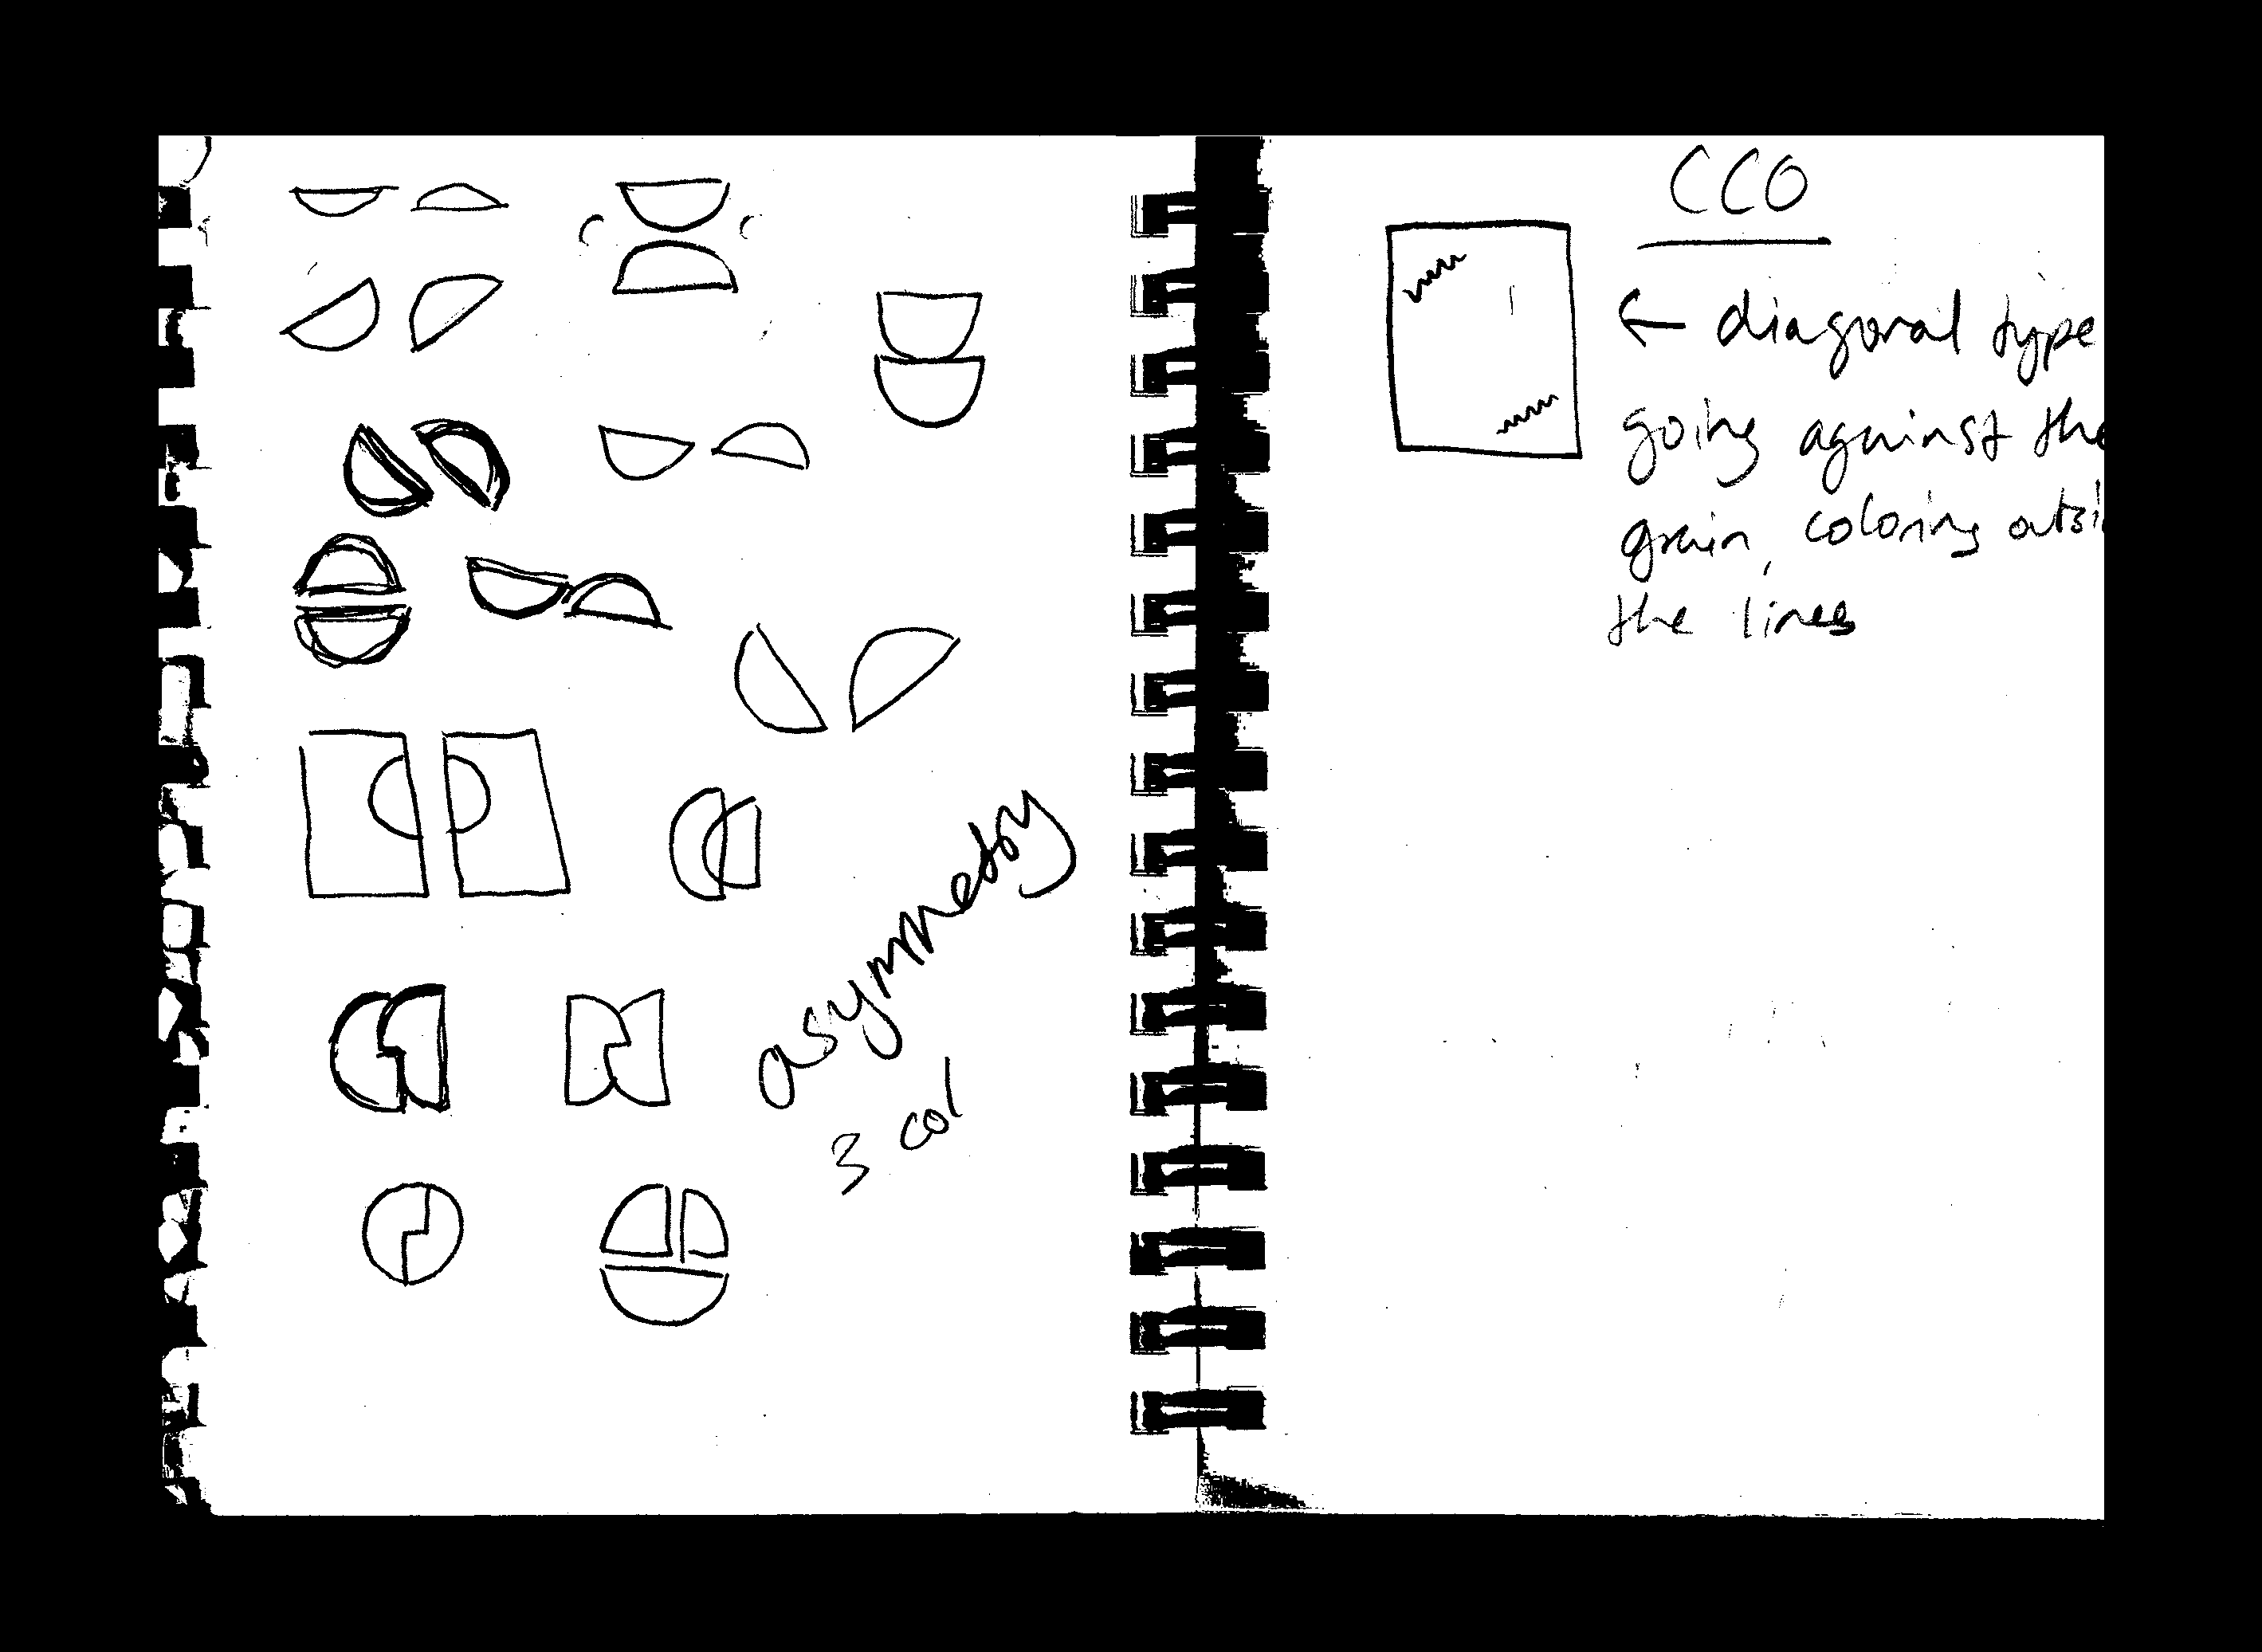 asymmetry
3 col
CCO
← diagonal type
going against the
grain, coloring outsi
the lines